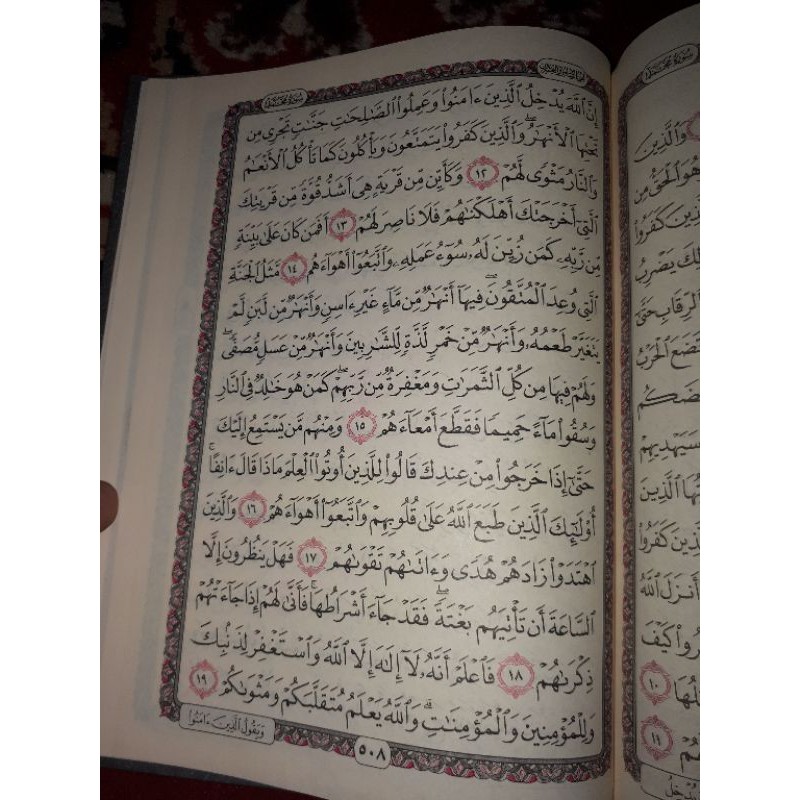 سورة محمد
إِنَّ ٱللَّهَ يُدْخِلُ ٱلَّذِينَ ءَامَنُوا۟ وَعَمِلُوا۟ ٱلصَّٰلِحَٰتِ جَنَّٰتٍ تَجْرِى مِن
تَحْتِهَا ٱلْأَنْهَٰرُ ۖ وَٱلَّذِينَ كَفَرُوا۟ يَتَمَتَّعُونَ وَيَأْكُلُونَ كَمَا تَأْكُلُ ٱلْأَنْعَٰمُ
وَٱلنَّارُ مَثْوًى لَّهُمْ ١٢ وَكَأَيِّن مِّن قَرْيَةٍ هِىَ أَشَدُّ قُوَّةً مِّن قَرْيَتِكَ
ٱلَّتِىٓ أَخْرَجَتْكَ أَهْلَكْنَٰهُمْ فَلَا نَاصِرَ لَهُمْ ١٣ أَفَمَن كَانَ عَلَىٰ بَيِّنَةٍ
مِّن رَّبِّهِۦ كَمَن زُيِّنَ لَهُۥ سُوٓءُ عَمَلِهِۦ وَٱتَّبَعُوٓا۟ أَهْوَآءَهُم ١٤ مَّثَلُ ٱلْجَنَّةِ
ٱلَّتِى وُعِدَ ٱلْمُتَّقُونَ ۖ فِيهَآ أَنْهَٰرٌ مِّن مَّآءٍ غَيْرِ ءَاسِنٍ وَأَنْهَٰرٌ مِّن لَّبَنٍ لَّمْ
يَتَغَيَّرْ طَعْمُهُۥ وَأَنْهَٰرٌ مِّنْ خَمْرٍ لَّذَّةٍ لِّلشَّٰرِبِينَ وَأَنْهَٰرٌ مِّنْ عَسَلٍ مُّصَفًّى ۖ
وَلَهُمْ فِيهَا مِن كُلِّ ٱلثَّمَرَٰتِ وَمَغْفِرَةٌ مِّن رَّبِّهِمْ ۖ كَمَنْ هُوَ خَٰلِدٌ فِى ٱلنَّارِ
وَسُقُوا۟ مَآءً حَمِيمًا فَقَطَّعَ أَمْعَآءَهُمْ ١٥ وَمِنْهُم مَّن يَسْتَمِعُ إِلَيْكَ
حَتَّىٰٓ إِذَا خَرَجُوا۟ مِنْ عِندِكَ قَالُوا۟ لِلَّذِينَ أُوتُوا۟ ٱلْعِلْمَ مَاذَا قَالَ ءَانِفًا ۚ
أُو۟لَٰٓئِكَ ٱلَّذِينَ طَبَعَ ٱللَّهُ عَلَىٰ قُلُوبِهِمْ وَٱتَّبَعُوٓا۟ أَهْوَآءَهُمْ ١٦ وَٱلَّذِينَ
ٱهْتَدَوْا۟ زَادَهُمْ هُدًى وَءَاتَىٰهُمْ تَقْوَىٰهُمْ ١٧ فَهَلْ يَنظُرُونَ إِلَّا
ٱلسَّاعَةَ أَن تَأْتِيَهُم بَغْتَةً ۖ فَقَدْ جَآءَ أَشْرَاطُهَا ۚ فَأَنَّىٰ لَهُمْ إِذَا جَآءَتْهُمْ
ذِكْرَىٰهُمْ ١٨ فَٱعْلَمْ أَنَّهُۥ لَآ إِلَٰهَ إِلَّا ٱللَّهُ وَٱسْتَغْفِرْ لِذَنۢبِكَ
وَلِلْمُؤْمِنِينَ وَٱلْمُؤْمِنَٰتِ ۗ وَٱللَّهُ يَعْلَمُ مُتَقَلَّبَكُمْ وَمَثْوَىٰكُمْ ١٩
وَيَقُولُ ٱلَّذِينَ ءَامَنُوا۟
٥٠٨
سورة محمد
وَٱلَّذِينَ
هُوَ ٱلْحَقُّ مِن
ٱلَّذِينَ كَفَرُوا۟
يَضْرِبُ
ٱلرِّقَابِ حَتَّىٰٓ
تَضَعَ ٱلْحَرْبُ
سَيَهْدِيهِمْ
ٱلَّذِينَ
كَفَرُوا۟
أَنزَلَ ٱللَّهُ
كَيْفَ
١٠
١١